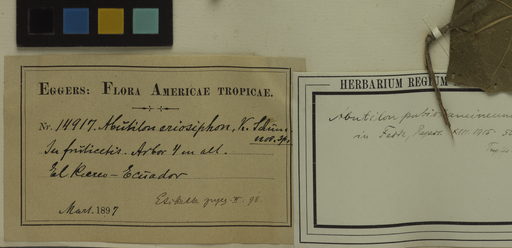 EGGERS: FLORA AMERICAE TROPICAE.
Nr. 14917. Abutilon eriosiphon, K. Schum.
nov. sp.
In fruticetis. Arbor 4 m alt.
El Recreo - Ecuador
Mart. 1897
HERBARIUM REGIUM
Abutilon
in Fedde, Repert. XIII. 1915